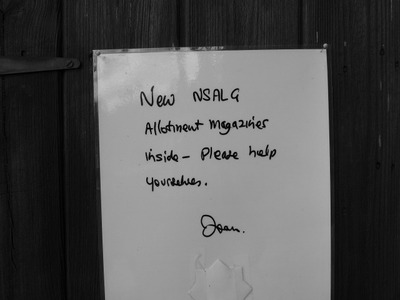 New NSALG
Allotment Magazines
inside - Please help
yourselves.
Joan.